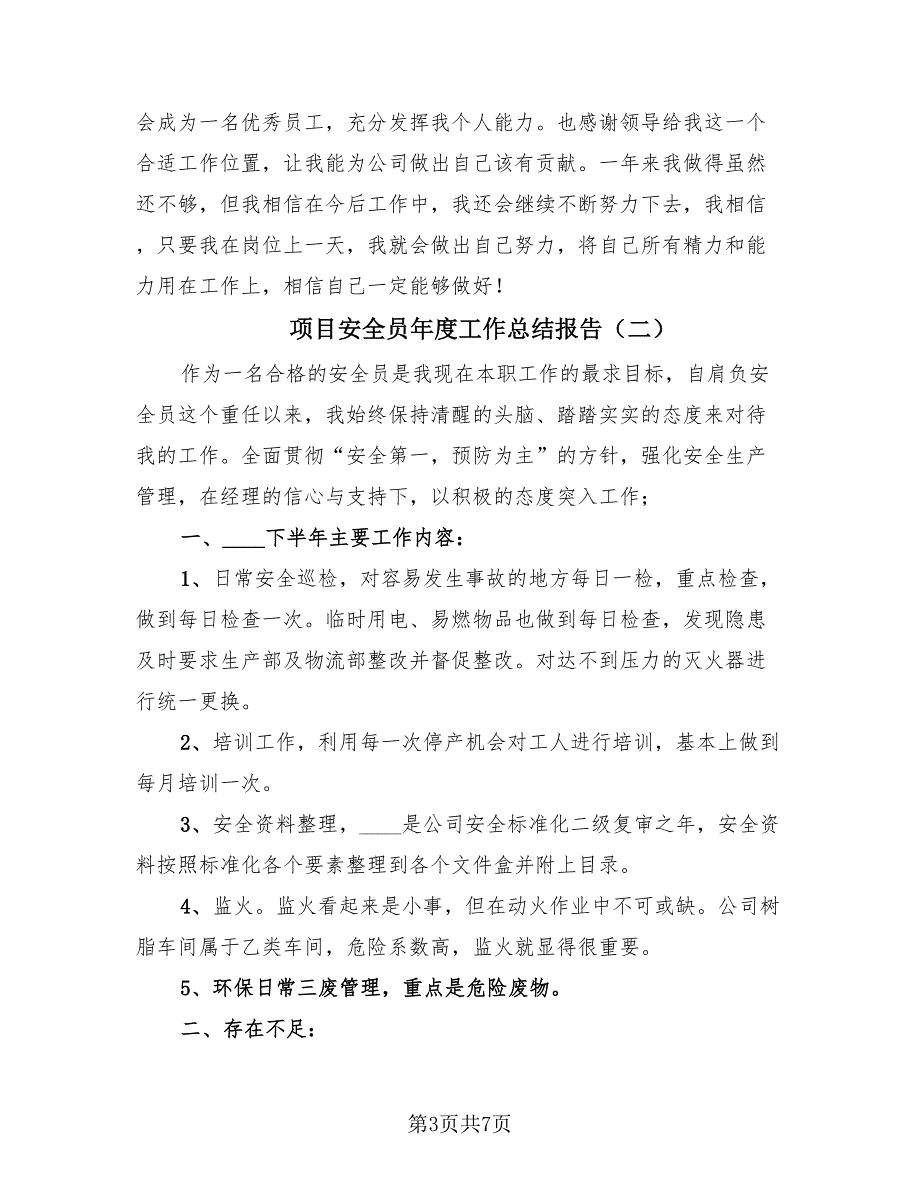 会成为一名优秀员工，充分发挥我个人能力。也感谢领导给我这一个
合适工作位置，让我能为公司做出自己该有贡献。一年来我做得虽然
还不够，但我相信在今后工作中，我还会继续不断努力下去，我相信
，只要我在岗位上一天，我就会做出自己努力，将自己所有精力和能
力用在工作上，相信自己一定能够做好！
项目安全员年度工作总结报告（二）
作为一名合格的安全员是我现在本职工作的最求目标，自肩负安
全员这个重任以来，我始终保持清醒的头脑、踏踏实实的态度来对待
我的工作。全面贯彻“安全第一，预防为主”的方针，强化安全生产
管理，在经理的信心与支持下，以积极的态度突入工作；
一、____下半年主要工作内容：
1、日常安全巡检，对容易发生事故的地方每日一检，重点检查，
做到每日检查一次。临时用电、易燃物品也做到每日检查，发现隐患
及时要求生产部及物流部整改并督促整改。对达不到压力的灭火器进
行统一更换。
2、培训工作，利用每一次停产机会对工人进行培训，基本上做到
每月培训一次。
3、安全资料整理，____是公司安全标准化二级复审之年，安全资
料按照标准化各个要素整理到各个文件盒并附上目录。
4、监火。监火看起来是小事，但在动火作业中不可或缺。公司树
脂车间属于乙类车间，危险系数高，监火就显得很重要。
5、环保日常三废管理，重点是危险废物。
二、存在不足：
第3页共7页